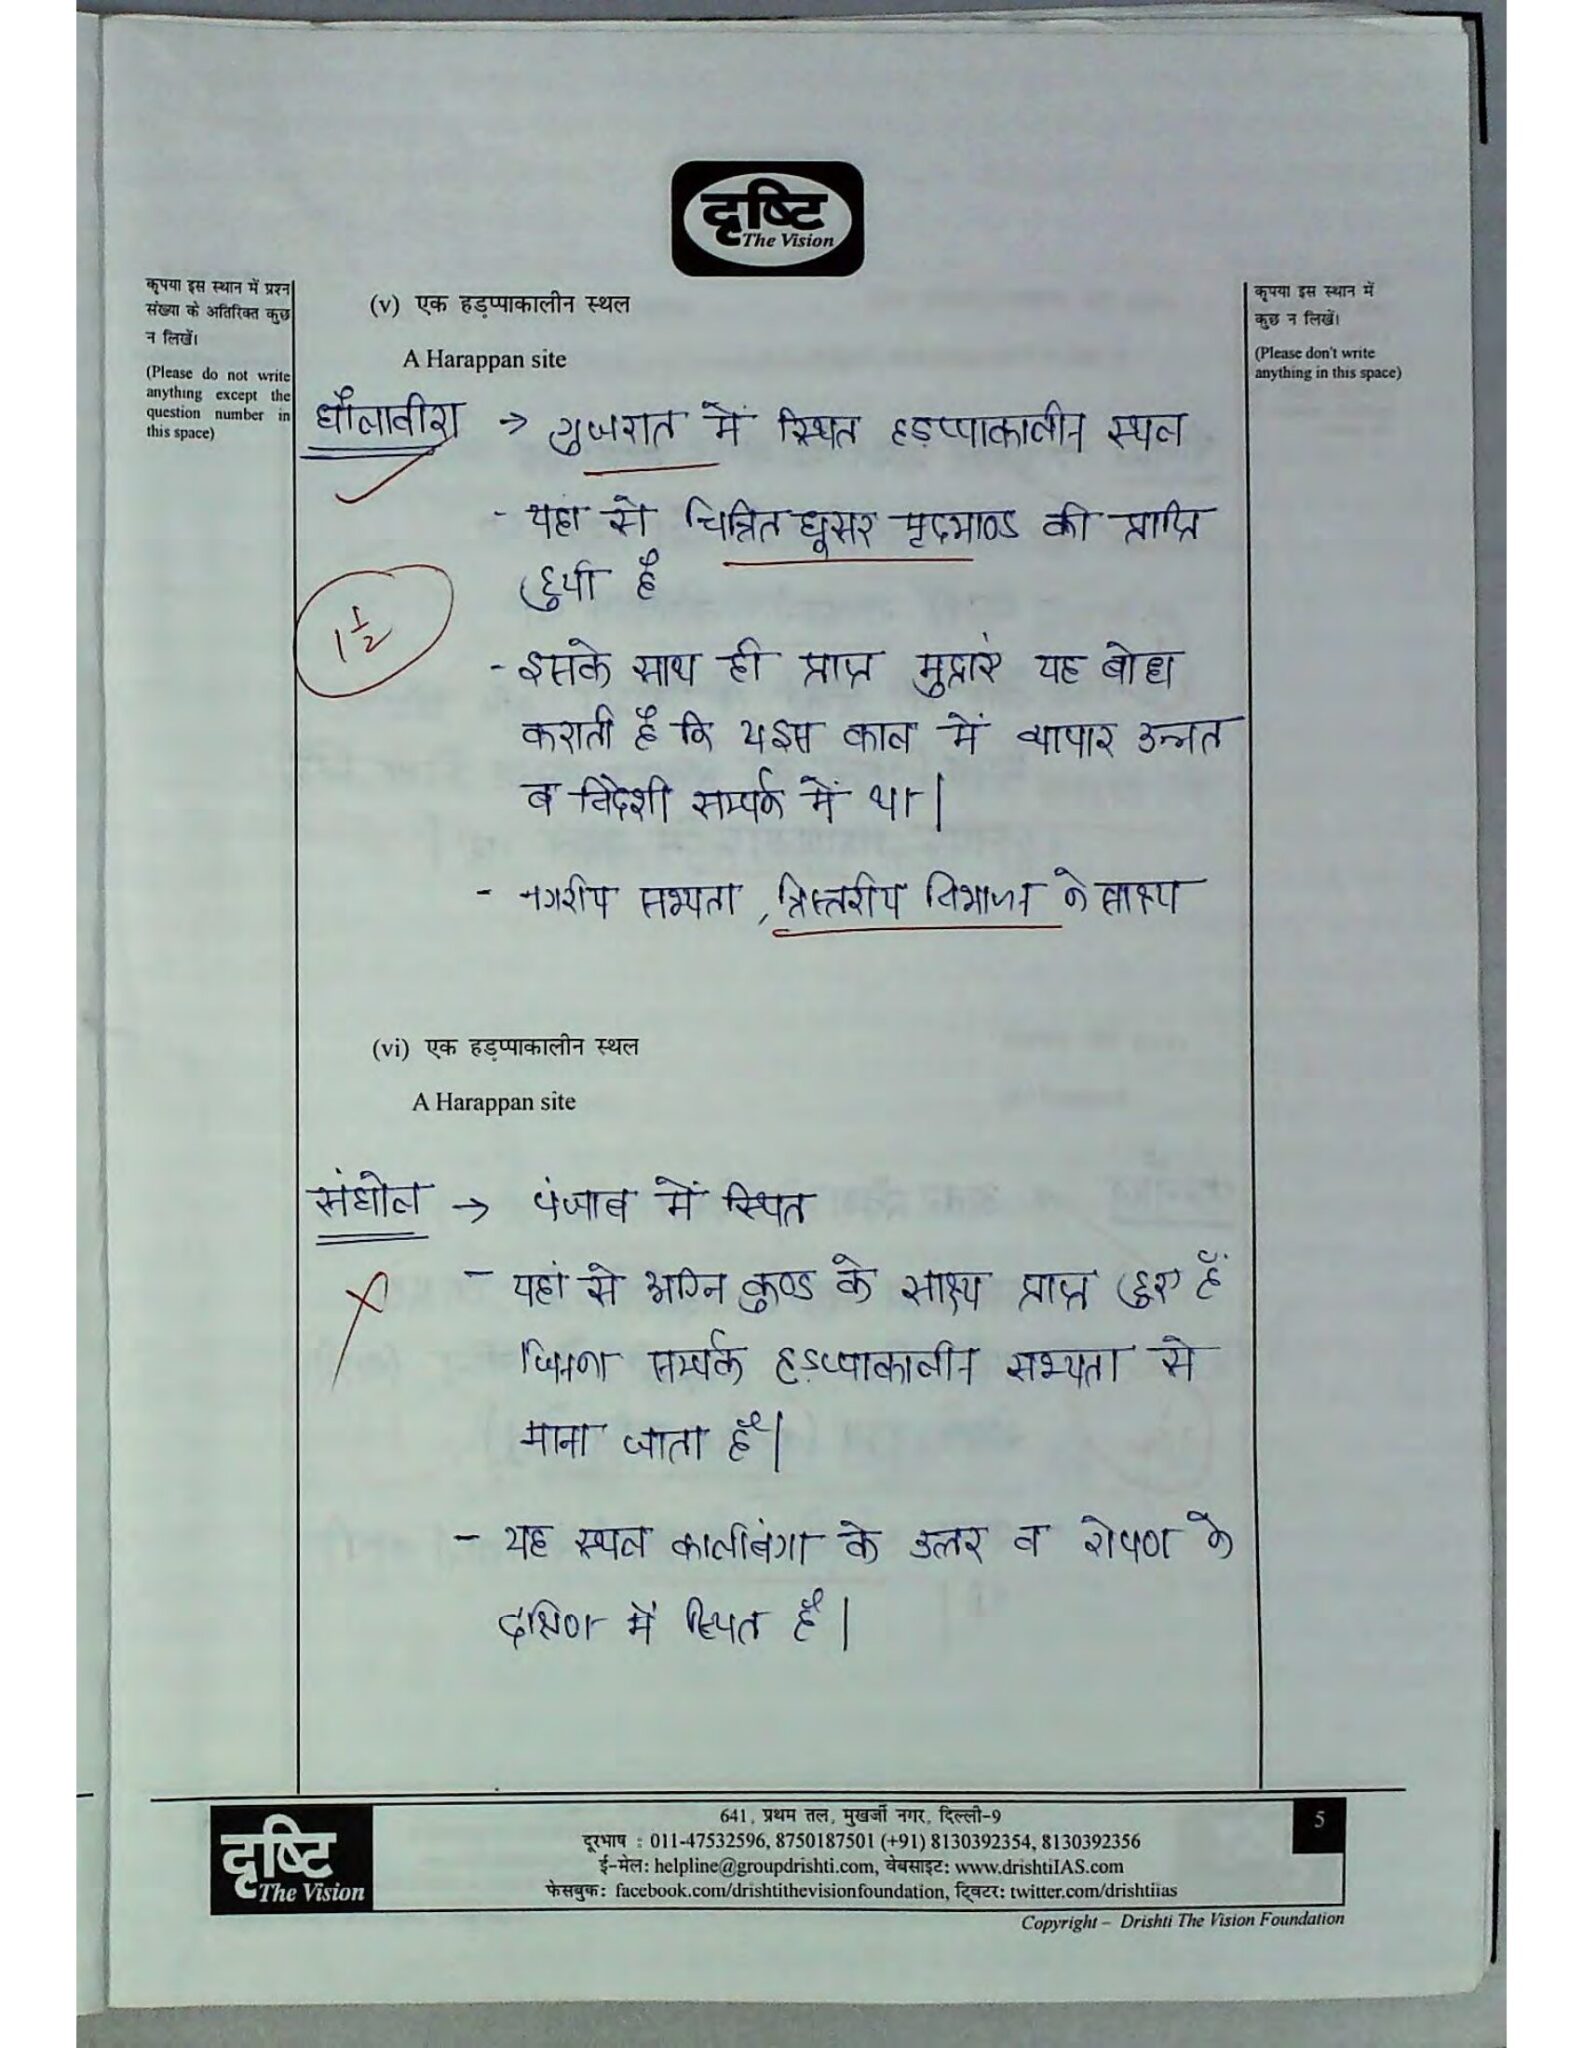 दृष्टि
The Vision
कृपया इस स्थान में प्रश्न
संख्या के अतिरिक्त कुछ
न लिखें।
(Please do not write
anything except the
question number in
this space)
(v) एक हड़प्पाकालीन स्थल
A Harappan site
कृपया इस स्थान में
कुछ न लिखें।
(Please don't write
anything in this space)
धौलावीरा → गुजरात में स्थित हड़प्पाकालीन स्थल
- यहां से चित्रित धूसर मृदभाण्ड की प्राप्ति
हुयी है
1 1/2
- इसके साथ ही प्राप्त मुद्राएं यह बोध
कराती है कि इस काल में व्यापार उन्नत
व विदेशी सम्पर्क में था।
- नगरीय सभ्यता, त्रिस्तरीय विभाजन के साक्ष्य
(vi) एक हड़प्पाकालीन स्थल
A Harappan site
संघोल → पंजाब में स्थित
- यहां से अग्नि कुण्ड के साक्ष्य प्राप्त हुए हैं
जिनका सम्पर्क हड़प्पाकालीन सभ्यता से
माना जाता है।
- यह स्थल कालीबंगा के उत्तर व रोपण के
दक्षिण में स्थित है।
दृष्टि
The Vision
641, प्रथम तल, मुखर्जी नगर, दिल्ली-9
दूरभाष : 011-47532596, 8750187501 (+91) 8130392354, 8130392356
ई-मेल: helpline@groupdrishti.com, वेबसाइट: www.drishtiIAS.com
फेसबुक: facebook.com/drishtithevisionfoundation, ट्विटर: twitter.com/drishtiias
5
Copyright – Drishti The Vision Foundation